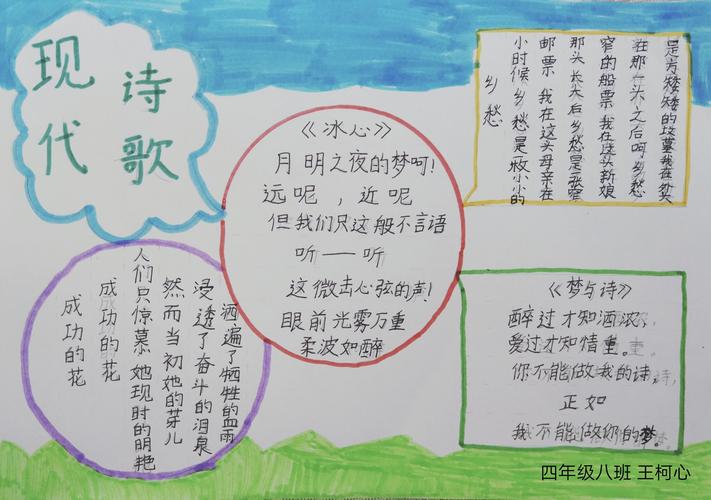 现代
诗歌
《冰心》
月明之夜的梦呵!
远呢，近呢
但我们只这般不言语
听——听
这微击心弦的声!
眼前光雾万重
柔波如醉
乡愁
小时候 乡愁是一枚小小的
邮票 我在这头母亲在
那头 长大后 乡愁是一张窄
窄的船票 我在这头新娘
在那一头 之后呵 乡愁
是方矮矮的坟墓我在外头
成功的花
成功的花
人们只惊慕她现时的明艳
然而当初她的芽儿
浸透了奋斗的泪泉
洒遍了牺牲的血雨
《梦与诗》
醉过才知酒浓、
爱过才知情重。
你不能做我的诗，
正如
我不能做你的梦。
四年级八班 王柯心